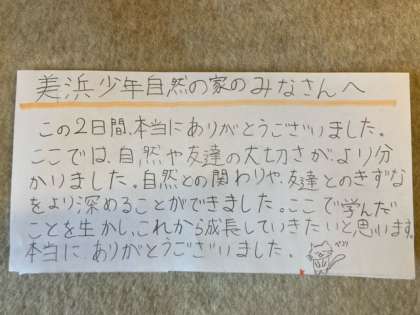 美浜少年自然の家のみなさんへ
この2日間、本当にありがとうございました。
ここでは、自然や友達の大切さがより分
かりました。自然との関わりや、友達とのきずな
をより深めることができました。ここで学んだ
ことを生かし、これから成長していきたいと思います。
本当に、ありがとうございました。